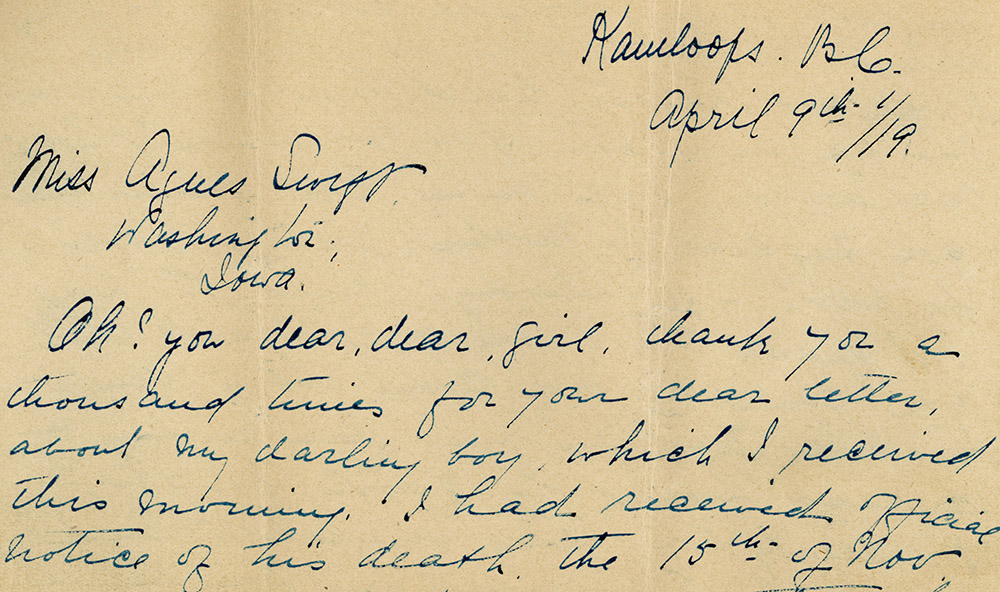 Kamloops. B.C.
April 9th 1/19.
Miss Agnes Swift.
Washington,
Iowa.
Oh! you dear, dear, girl, thank you a
thousand times for your dear letter,
about my darling boy, which I received
this morning. I had received official
notice of his death, the 15th of Nov.